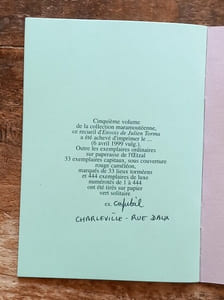 Cinquième volume
de la collection maramoutéenne,
ce recueil d'Envois de Julien Torma
a été achevé d'imprimer le ...
(6 avril 1999 vulg.)
Outre les exemplaires ordinaires
sur paperasse de l'Œtzal
33 exemplaires capitaux, sous couverture
rouge caméléon,
marqués de 33 lieux torméens
et 444 exemplaires de luxe
numérotés de 1 à 444
ont été tirés sur papier
vert solitaire
ex. capital
CHARLEVILLE - RUE